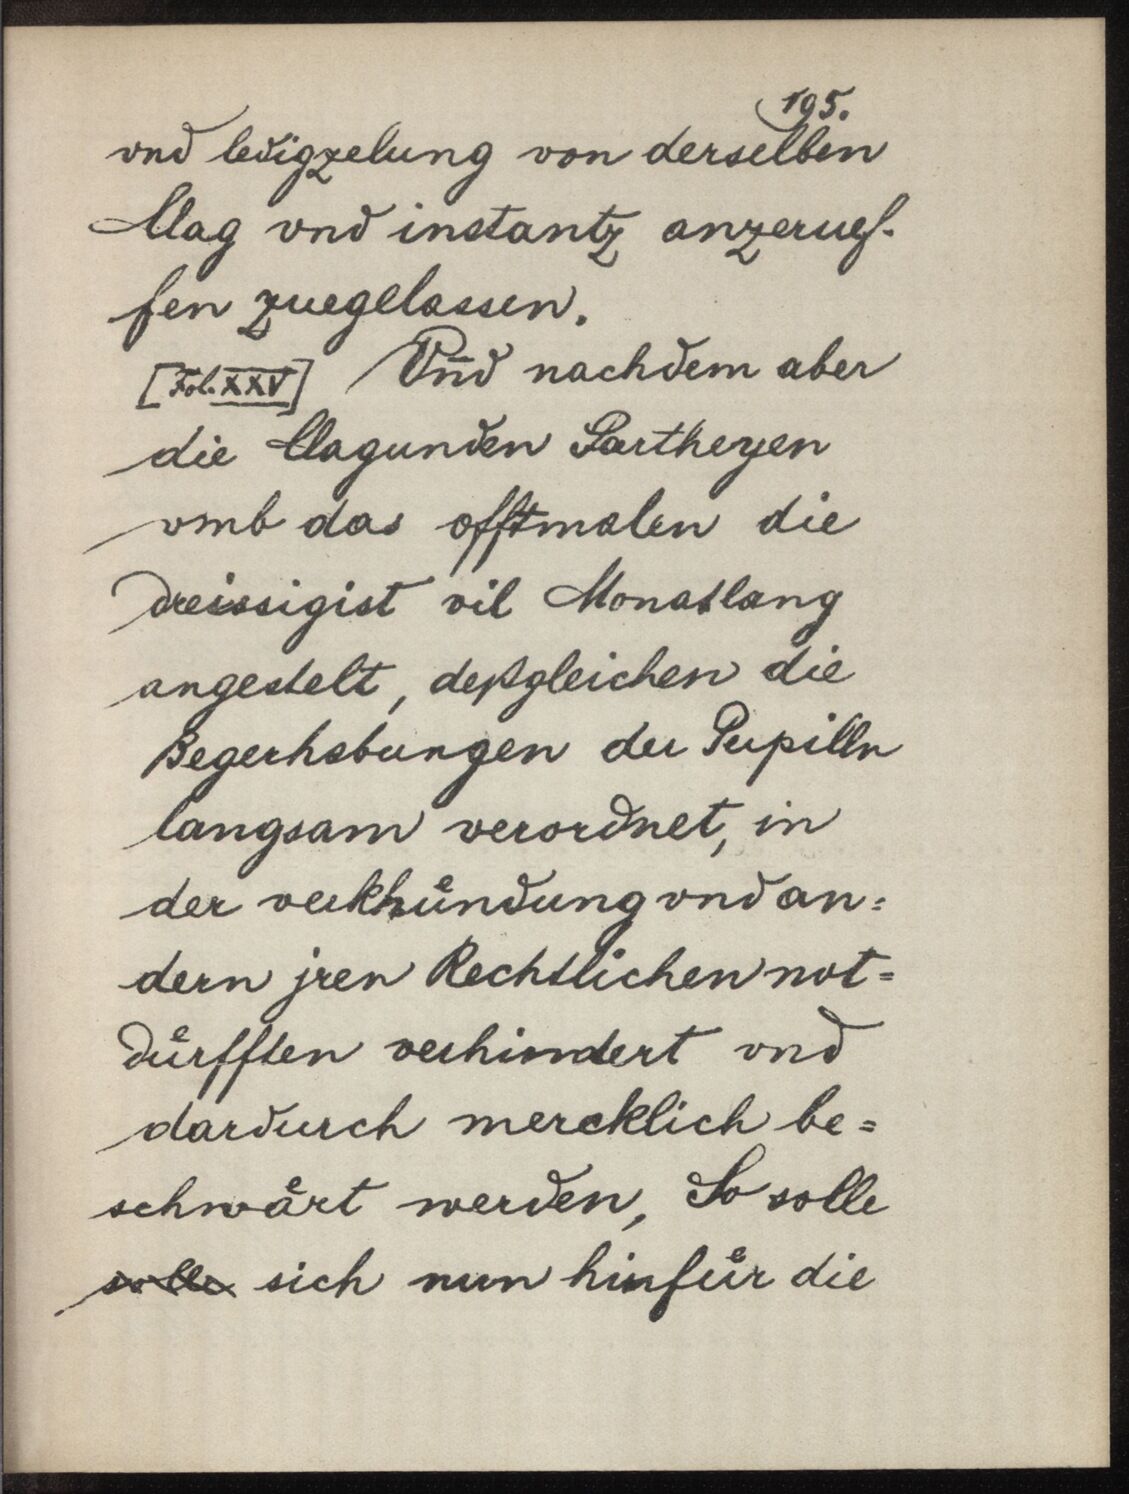 195.
vnd ledigzelung von derselben
Clag vnd instantz anzeruef-
fen zuegelassen.
[Fol. XXV] Vn̄d nachdem aber
die Clagunden Partheyen
vmb das offtmalen die
dreissigist vil Monatlang
angestelt, deßgleichen die
Begerhabungen der Pupilln
langsam verordnet, in
der verkhuͤndung vnd an=
dern jren Rechtlichen not=
duͤrfften verhindert vnd
dardurch mercklich be=
schwaͤrt werden, So solle
solle sich nun hinfuͤr die